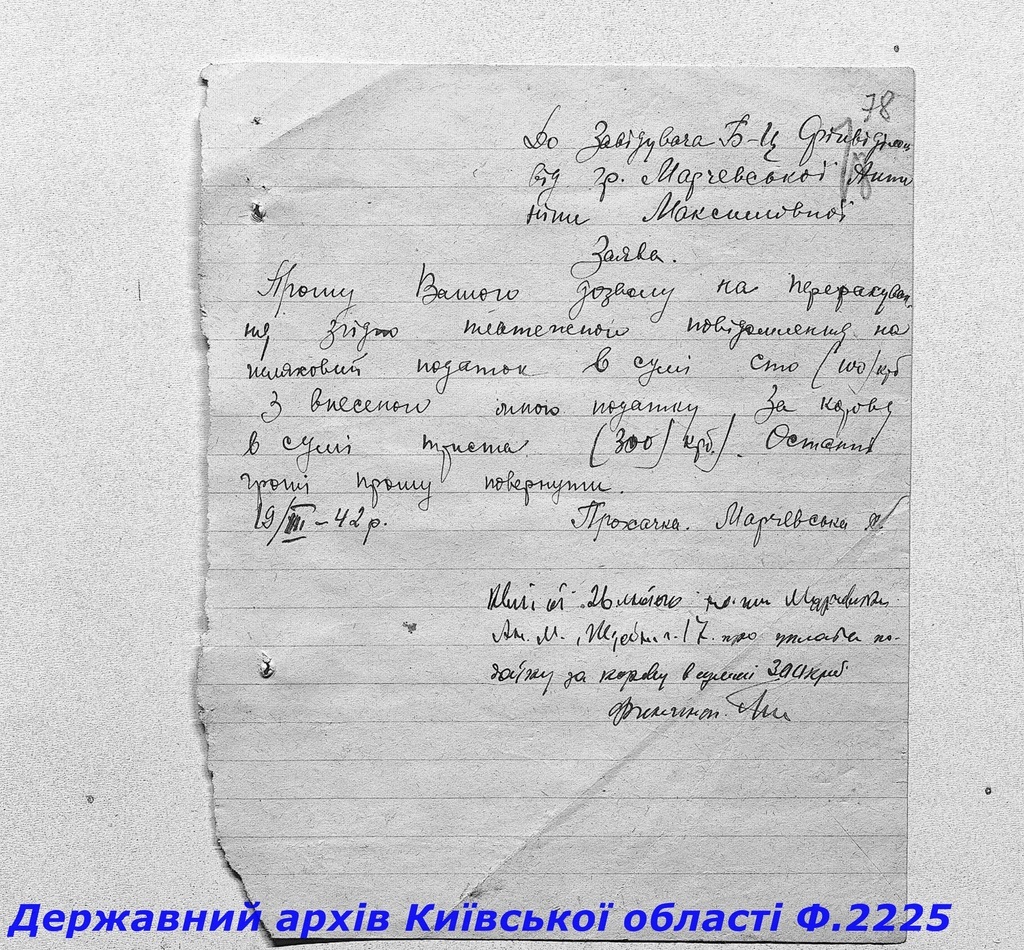 78
До Завідувача Б-Ц Фінвідділом
від гр. Марчевської Анто
ніни Максимовної
Заява.
Прошу Вашого дозволу на перерахуван
ня згідно повідомлення на
шляховий податок в сумі сто (100) крб
З внесеного мною податку за корову
в сумі триста (300) крб.). Останні
гроші прошу повернути.
19/III – 42 р. Прохачка. Марчевська А.
26 лютого
Ан. М. 17. про уплата по-
датку за корову в сумі 300 крб
Державний архів Київської області Ф.2225